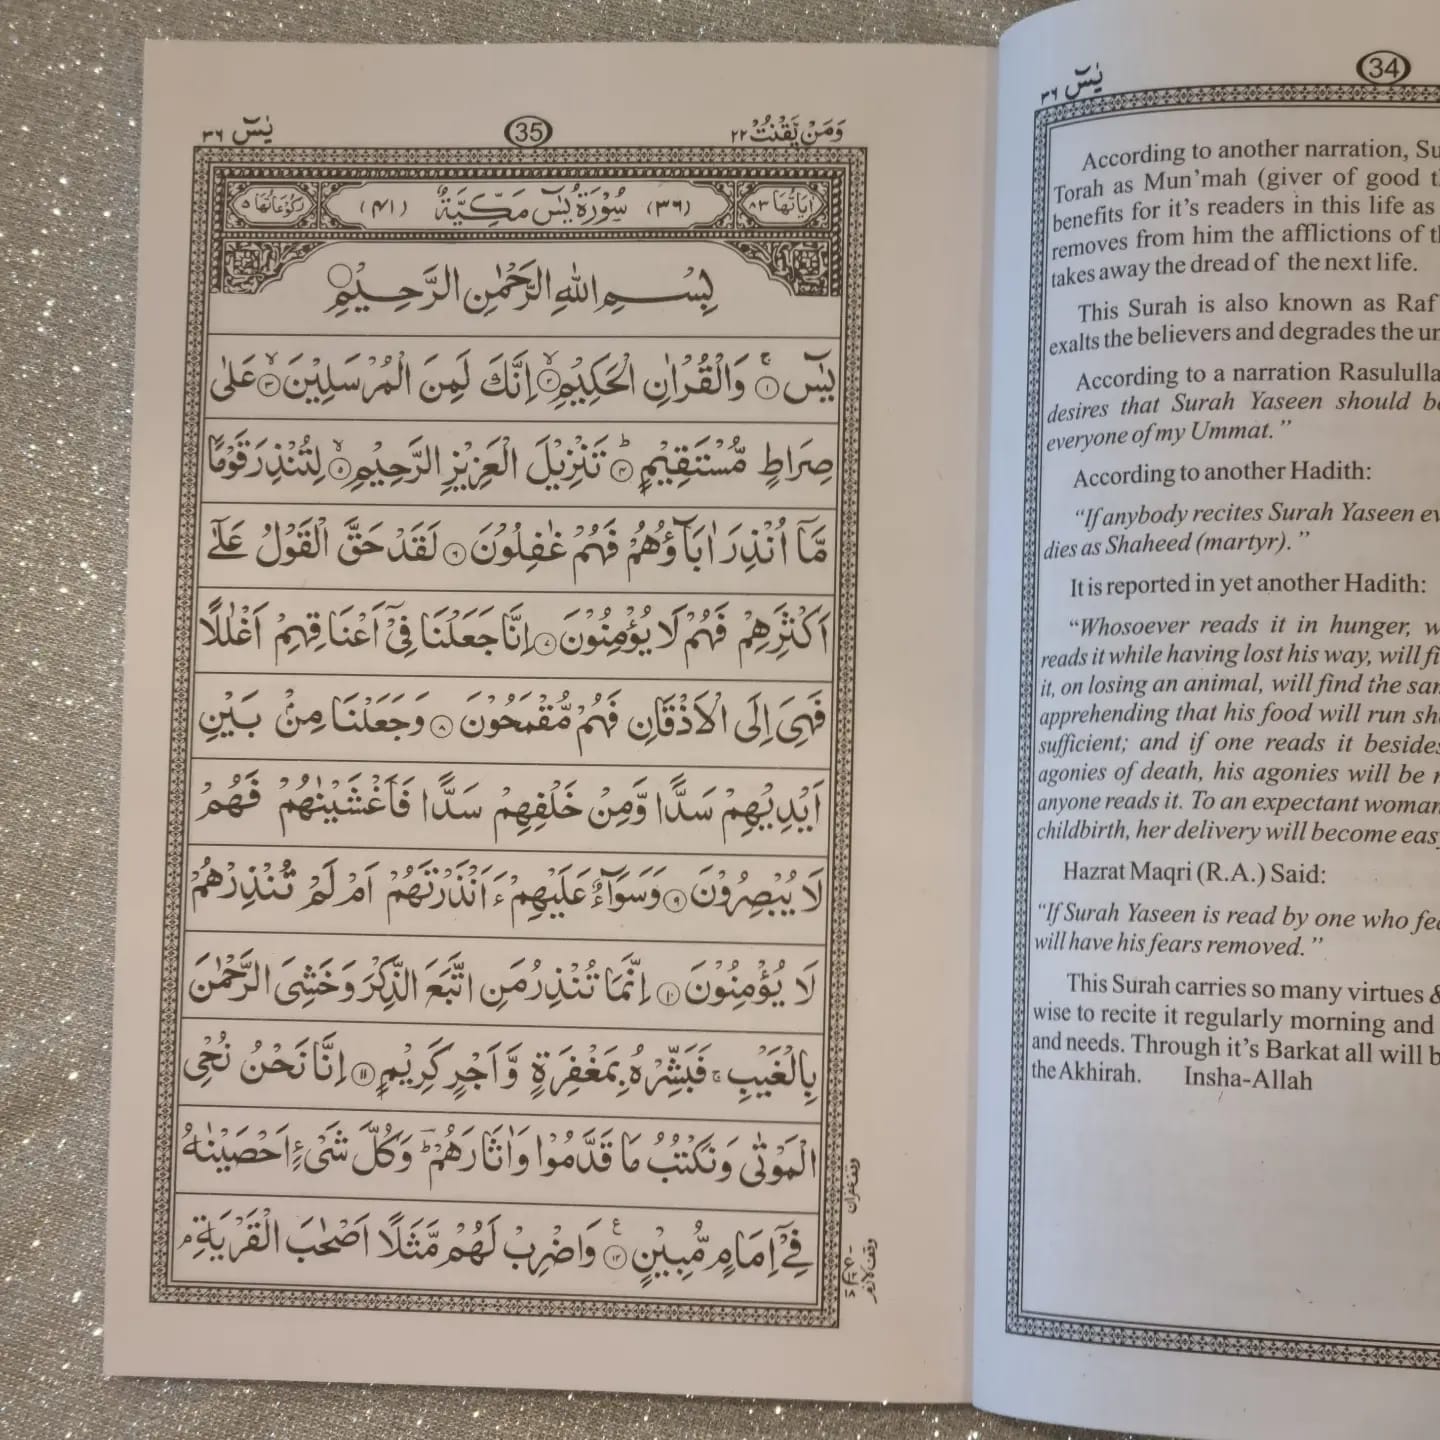 یٰسٓ ۳۶
34
According to another narration, Su
Torah as Mun’mah (giver of good th
benefits for it’s readers in this life as
removes from him the afflictions of th
takes away the dread of the next life.
This Surah is also known as Raf
exalts the believers and degrades the un
According to a narration Rasululla
desires that Surah Yaseen should be
everyone of my Ummat.”
According to another Hadith:
“If anybody recites Surah Yaseen ev
dies as Shaheed (martyr).”
It is reported in yet another Hadith:
“Whosoever reads it in hunger, w
reads it while having lost his way, will fi
it, on losing an animal, will find the sam
apprehending that his food will run sho
sufficient; and if one reads it besides
agonies of death, his agonies will be m
anyone reads it. To an expectant woman
childbirth, her delivery will become easy
Hazrat Maqri (R.A.) Said:
“If Surah Yaseen is read by one who fea
will have his fears removed.”
This Surah carries so many virtues &
wise to recite it regularly morning and
and needs. Through it’s Barkat all will b
the Akhirah. Insha-Allah
وَمَنْ یَّقْنُتْ ۲۲
35
یٰسٓ ۳۶
اٰیَاتُهَا ۸۳
(۳۶) سُوْرَةُ یٰسٓ مَكِّیَّةٌ (۴۱)
رُكُوْعَاتُهَا ۵
بِسْمِ اللّٰهِ الرَّحْمٰنِ الرَّحِیْمِ
یٰسٓ ۚ﴿۱﴾ وَالْقُرْاٰنِ الْحَكِیْمِ ۙ﴿۲﴾ اِنَّكَ لَمِنَ الْمُرْسَلِیْنَ ۙ﴿۳﴾ عَلٰی
صِرَاطٍ مُّسْتَقِیْمٍ ؕ﴿۴﴾ تَنْزِیْلَ الْعَزِیْزِ الرَّحِیْمِ ۙ﴿۵﴾ لِتُنْذِرَ قَوْمًا
مَّاۤ اُنْذِرَ اٰبَآؤُهُمْ فَهُمْ غٰفِلُوْنَ ﴿۶﴾ لَقَدْ حَقَّ الْقَوْلُ عَلٰۤی
اَكْثَرِهِمْ فَهُمْ لَا یُؤْمِنُوْنَ ﴿۷﴾ اِنَّا جَعَلْنَا فِیْۤ اَعْنَاقِهِمْ اَغْلٰلًا
فَهِیَ اِلَی الْاَذْقَانِ فَهُمْ مُّقْمَحُوْنَ ﴿۸﴾ وَجَعَلْنَا مِنْۢ بَیْنِ
اَیْدِیْهِمْ سَدًّا وَّمِنْ خَلْفِهِمْ سَدًّا فَاَغْشَیْنٰهُمْ فَهُمْ
لَا یُبْصِرُوْنَ ﴿۹﴾ وَسَوَآءٌ عَلَیْهِمْ ءَاَنْذَرْتَهُمْ اَمْ لَمْ تُنْذِرْهُمْ
لَا یُؤْمِنُوْنَ ﴿۱۰﴾ اِنَّمَا تُنْذِرُ مَنِ اتَّبَعَ الذِّكْرَ وَخَشِیَ الرَّحْمٰنَ
بِالْغَیْبِ ۚ فَبَشِّرْهُ بِمَغْفِرَةٍ وَّاَجْرٍ كَرِیْمٍ ﴿۱۱﴾ اِنَّا نَحْنُ نُحْیِ
الْمَوْتٰی وَنَكْتُبُ مَا قَدَّمُوْا وَاٰثَارَهُمْ ؕ وَكُلَّ شَیْءٍ اَحْصَیْنٰهُ
فِیْۤ اِمَامٍ مُّبِیْنٍ ﴿۱۲﴾ ع وَاضْرِبْ لَهُمْ مَّثَلًا اَصْحٰبَ الْقَرْیَةِ ۘ
وقف غفران
وقف لازم